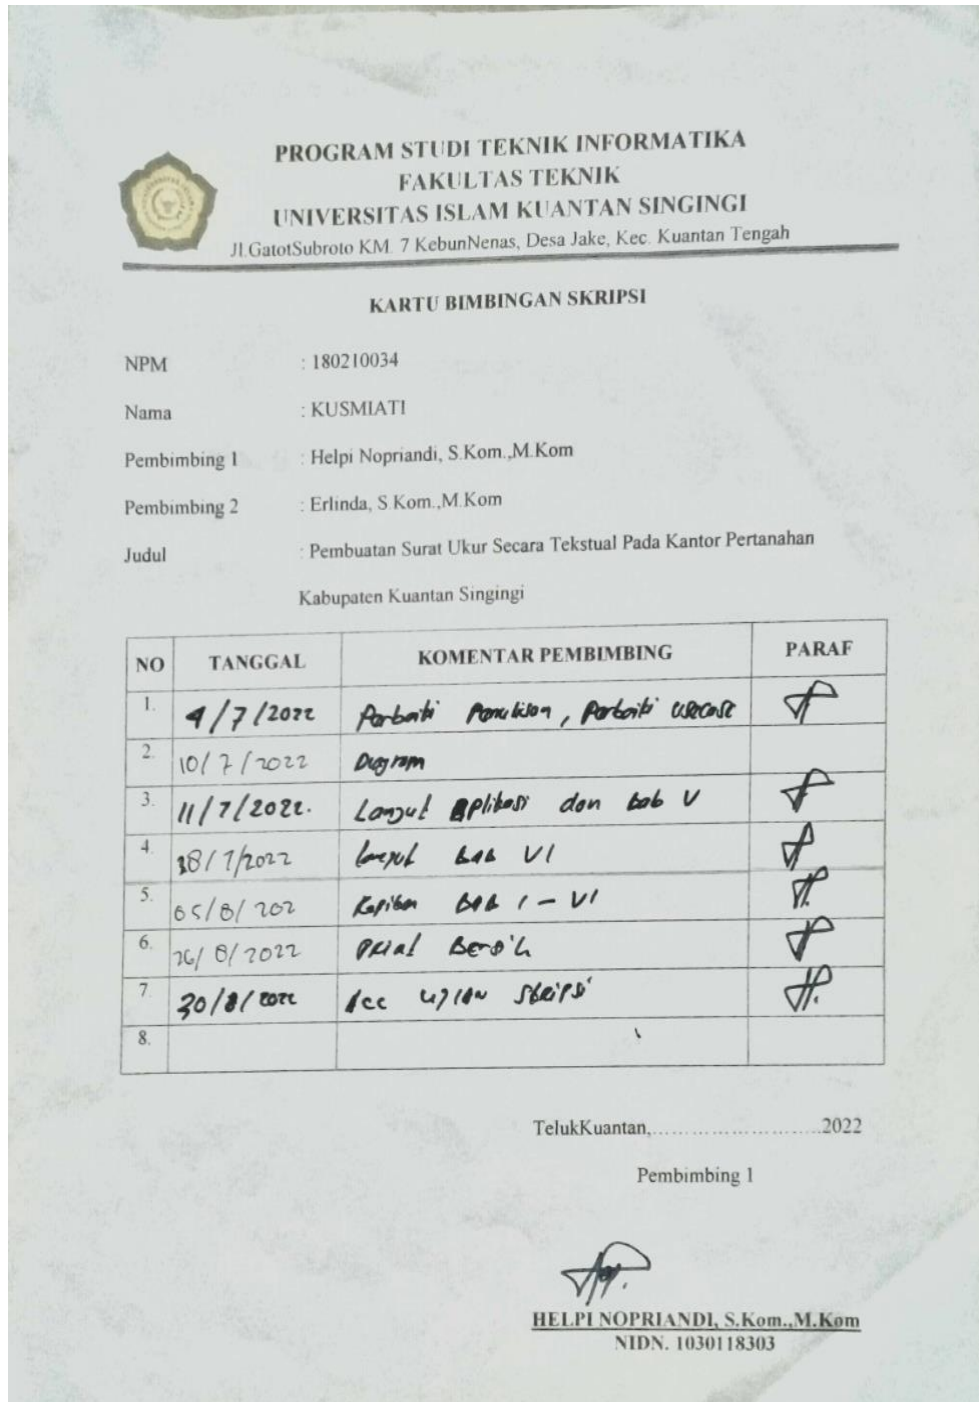 PROGRAM STUDI TEKNIK INFORMATIKA
FAKULTAS TEKNIK
UNIVERSITAS ISLAM KUANTAN SINGINGI
Jl.GatotSubroto KM. 7 KebunNenas, Desa Jake, Kec. Kuantan Tengah
KARTU BIMBINGAN SKRIPSI
NPM : 180210034
Nama : KUSMIATI
Pembimbing 1 : Helpi Nopriandi, S.Kom.,M.Kom
Pembimbing 2 : Erlinda, S.Kom.,M.Kom
Judul : Pembuatan Surat Ukur Secara Tekstual Pada Kantor Pertanahan
Kabupaten Kuantan Singingi
NO TANGGAL KOMENTAR PEMBIMBING PARAF
1. 4/7/2022 Perbaiki Penulisan, Perbaiki usecase
2. 10/7/2022 Diagram
3. 11/7/2022. Lanjut aplikasi dan bab V
4. 18/7/2022 Lanjut BAB VI
5. 05/8/202 BAB I - VI
6. 26/8/2022
7. 30/8/2022 Acc ujian skripsi
8.
TelukKuantan,..........................2022
Pembimbing 1
HELPI NOPRIANDI, S.Kom.,M.Kom
NIDN. 1030118303